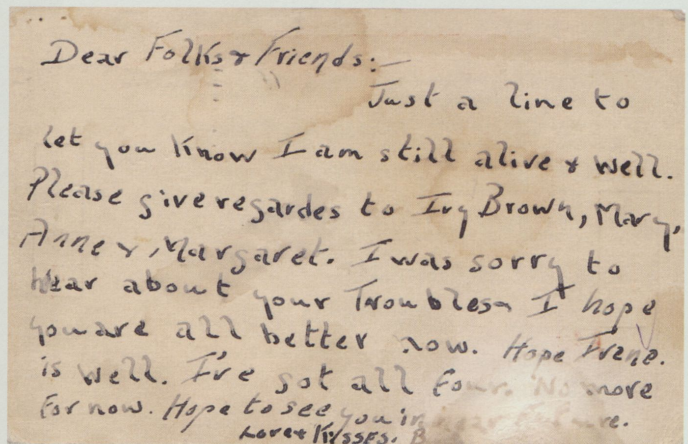 Dear Folks & Friends:—
Just a line to
let you know I am still alive & well.
Please give regardes to Ivy Brown, Mary,
Anne & Margaret. I was sorry to
hear about your Troubles I hope
you are all better now. Hope Irene.
is well. I've got all four. No more
for now. Hope to see you in near future.
Love & Kysses.